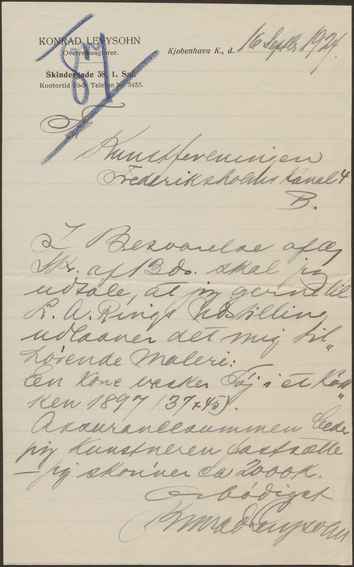 KONRAD LEVYSOHN
Overretssagfører.
Skindergade 38, 1. Sal.
Kontortid 10-3. Telefon No. 3455.
Kjøbenhavn K., d. 16 Septbr 1921.
Kunstforeningen
Frederiksholms Kanal 4
B.
I Besvarelse af æ
Skr. af 13 ds. skal jeg
udtale, at jeg gerne til
L. A. Rings Udstilling
udlaaner det mig til-
hørende Maleri:
En Kone vasker Tøj i et Køk-
ken 1897 (37 x 45).
Assurancesummen beder
jeg Kunstneren fastsætte
– jeg skønner ca 2000 K.
Ærbødigst
Konrad Levysohn